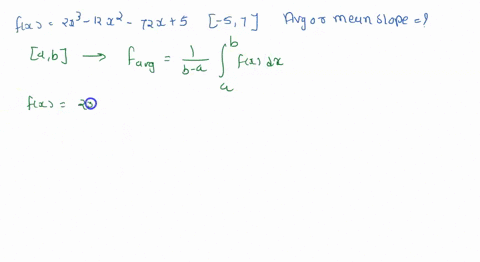 f(x) = 2x³ - 12x² - 72x + 5 [-5, 7] Avg or mean slope = ?
[a,b] → f avg = 1/(b-a) ∫ₐᵇ f(x) dx
f(x) =